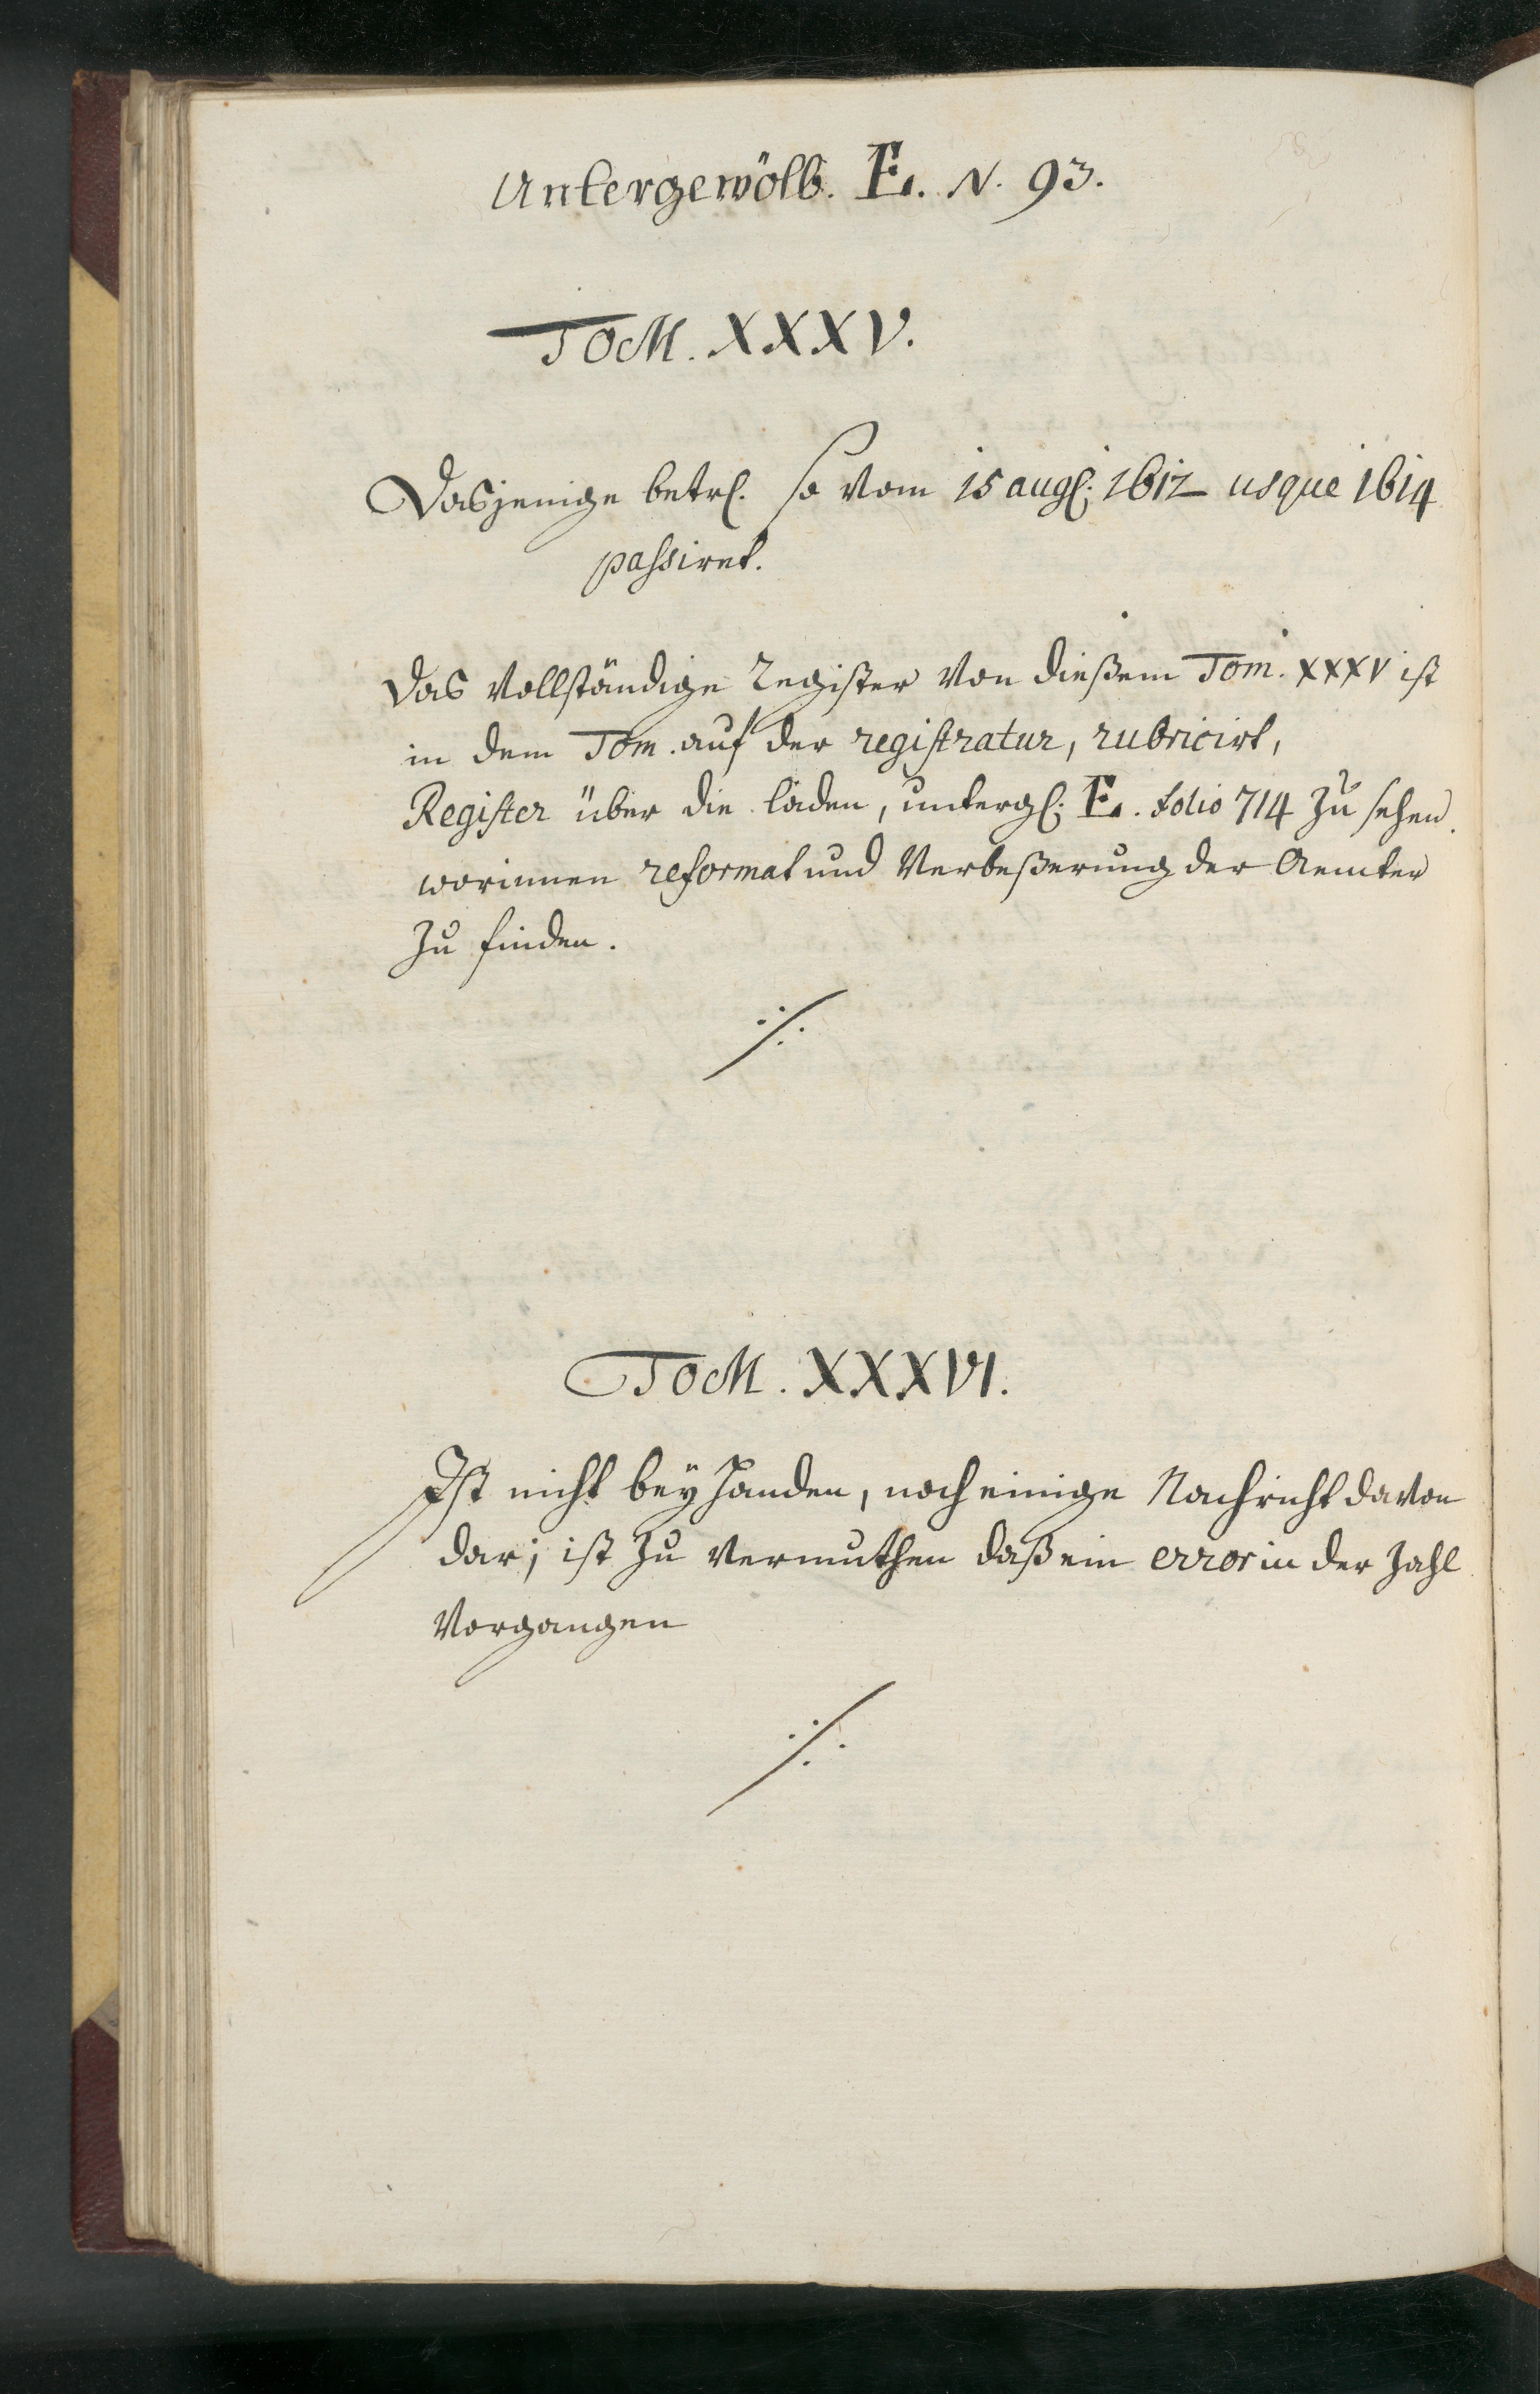 Untergewölb. E. N. 93.
TOM. XXXV.
Dasjenige betrf. so vom 15 augs: 1612 usque 1614
passiret.
Das vollständige Register von dießem Tom. XXXV ist
in dem Tom. auf der registratur, rubricirt,
Register über die laden, untergs: E. folio 714 zu sehen.
worinnen reformat und Verbeßerung der Aemter
zu finden.
·/.
TOM. XXXVI.
Ist nicht bey handen, noch einige Nachricht davon
dar; ist zu vermuthen daß ein error in der Zahl
vorgangen
·/.